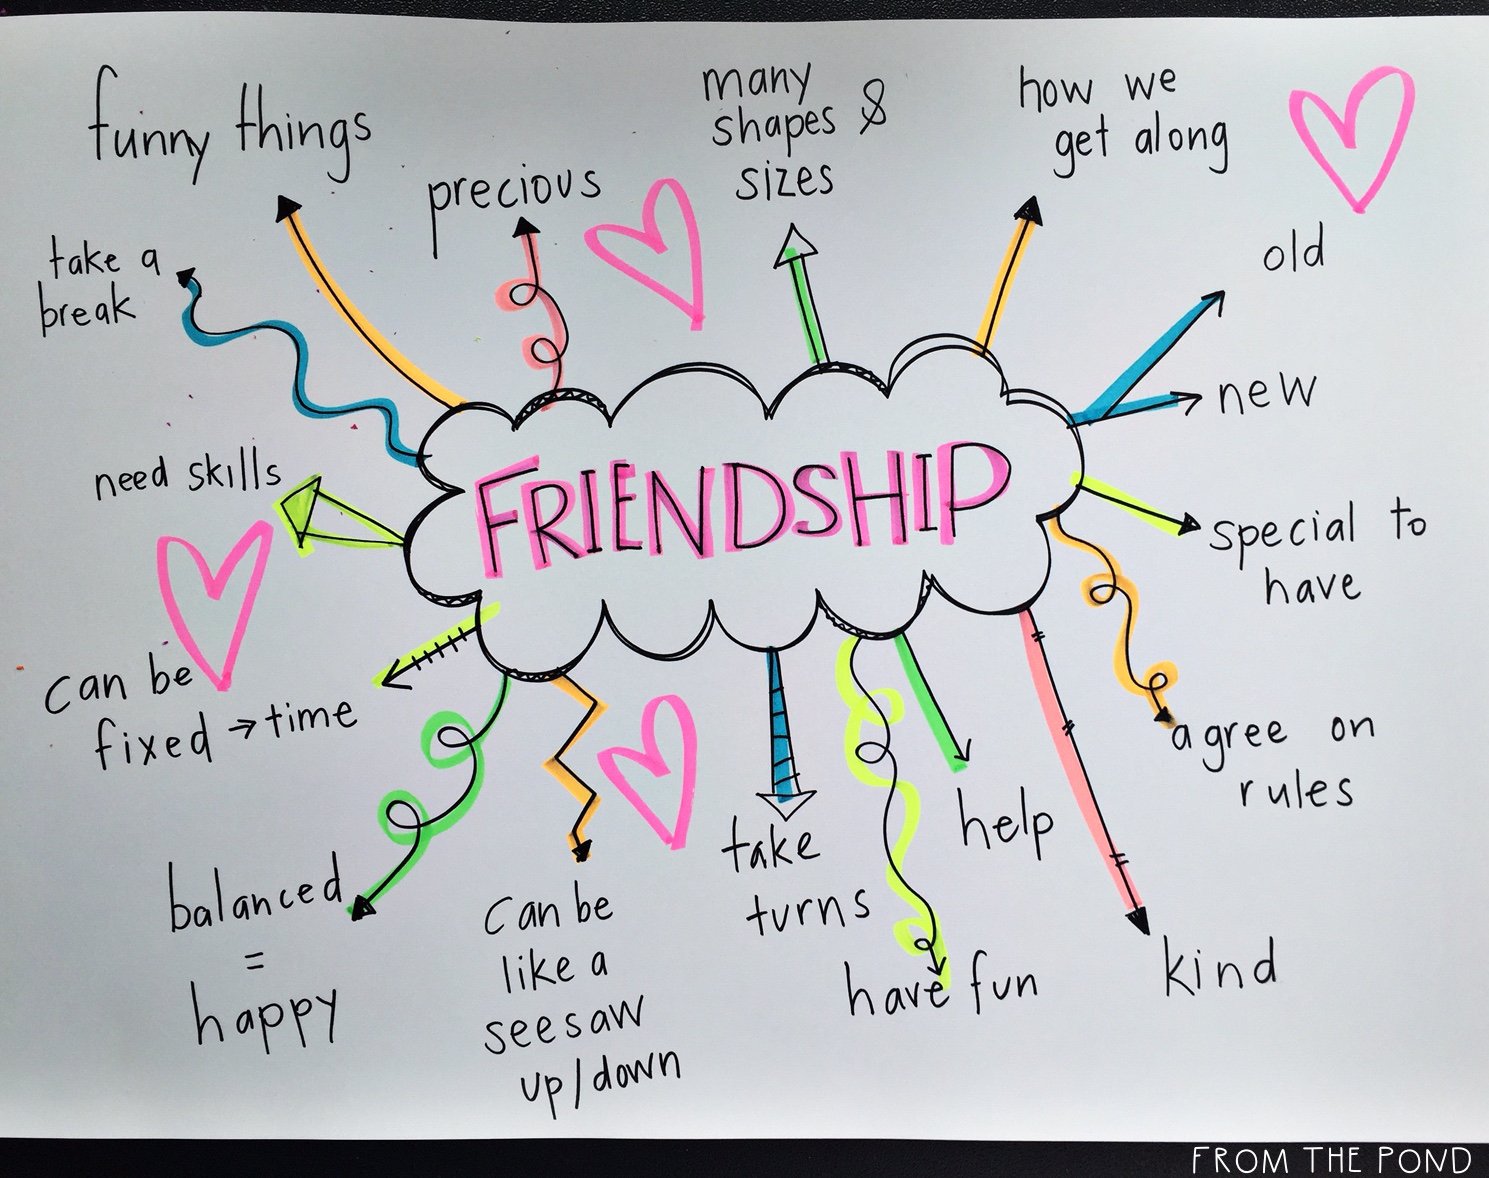 funny things
precious
many
shapes &
sizes
how we
get along
old
new
take a
break
need skills
FRIENDSHIP
special to
have
can be
fixed → time
agree on
rules
balanced
=
happy
can be
like a
seesaw
up/down
take
turns
help
have fun
kind
FROM THE POND